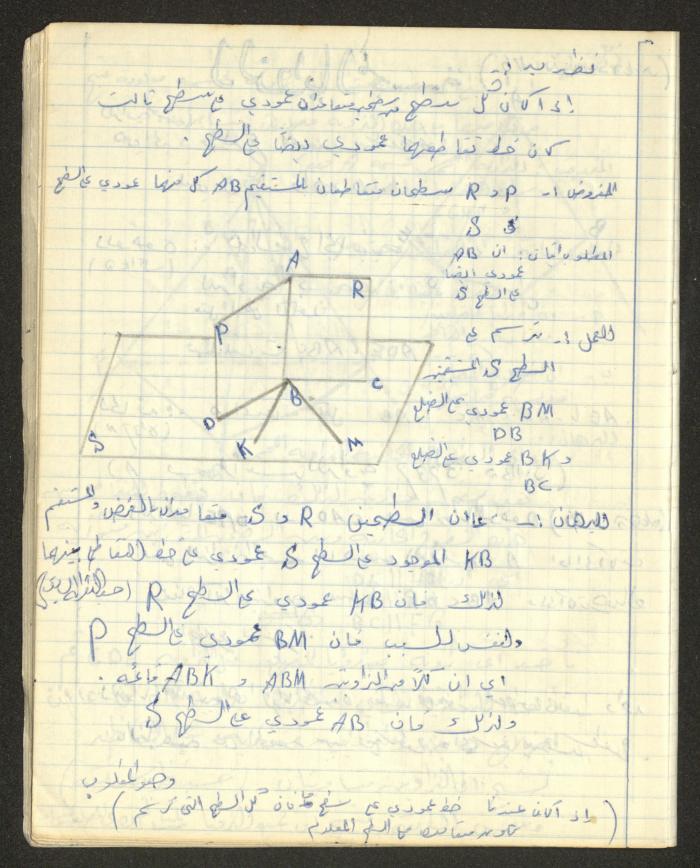 نظرية :-
إذا كان كل سطح من سطحين متقاطعان عمودي على سطح ثالث
كان خط تقاطعهما عمودي أيضاً على السطح .
المفروض :- P و R سطحان متقاطعان بالمستقيم AB كل منهما عمودي على السطح
S
المطلوب اثبات : ان AB
عمودي ايضا
على السطح S
العمل :- نرسم على
السطح S المستقيم
BM عمودي على الضلع
DB
و BK عمودي على الضلع
BC
A
R
P
C
B
D
K
M
S
البرهان :- بما ان السطحين R و S متعامدان بالفرض والمستقيم
KB الموجود على السطح S عمودي على خط التقاطع بينهما
لذلك فان KB عمودي على السطح R
ولنفس السبب فان BM عمودي على السطح P
اي ان كلاً من الزاويتين ABM و ABK قائمة .
ولذلك فان AB عمودي على السطح S
وهو المطلوب
( إذا كان عندنا خط عمودي على سطح فان كل السطح التي ترسم )